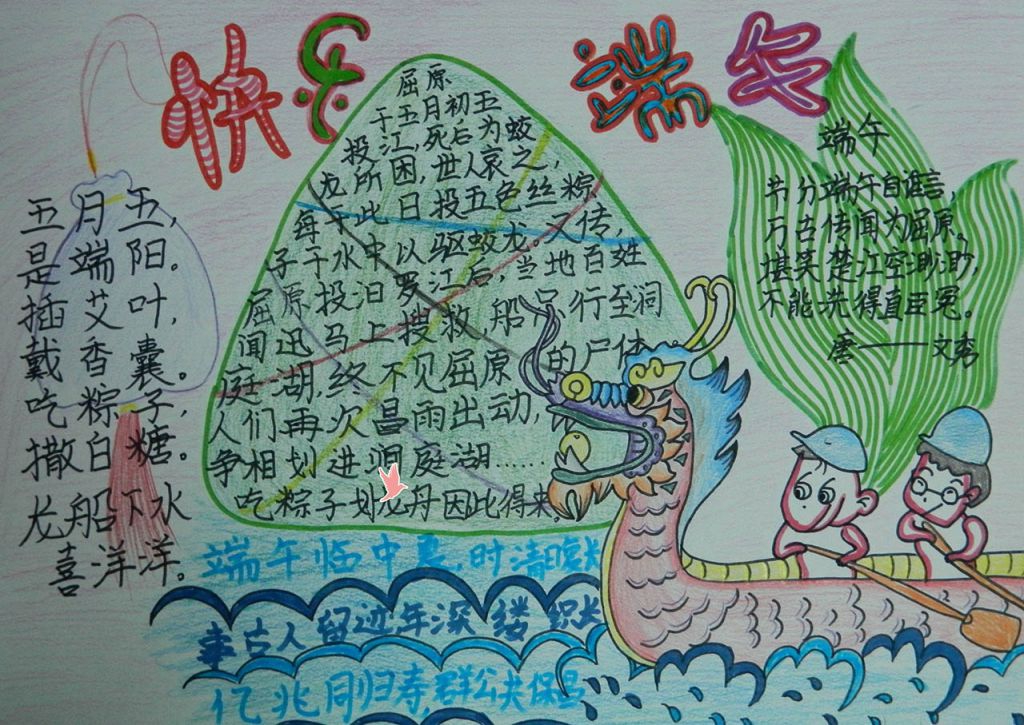 快乐 端午
五月五,
是端阳。
插艾叶,
戴香囊。
吃粽子,
撒白糖。
龙船下水
喜洋洋。
屈原
于五月初五
投江,死后为蛟
龙所困,世人哀之,
每于此日投五色丝粽
子于水中以驱蛟龙。又传,
屈原投汨罗江后,当地百姓
闻迅马上搜救,船只行至洞
庭湖,终不见屈原的尸体
人们再次冒雨出动,
争相划进洞庭湖……
吃粽子划龙舟因此得来。
端午
节分端午自谁言,
万古传闻为屈原。
堪笑楚江空渺渺,
不能洗得直臣冤。
唐——文秀
端午临中夏,时清日复长
来古人留迹年深缕积长
亿兆同归寿,群公共保昌